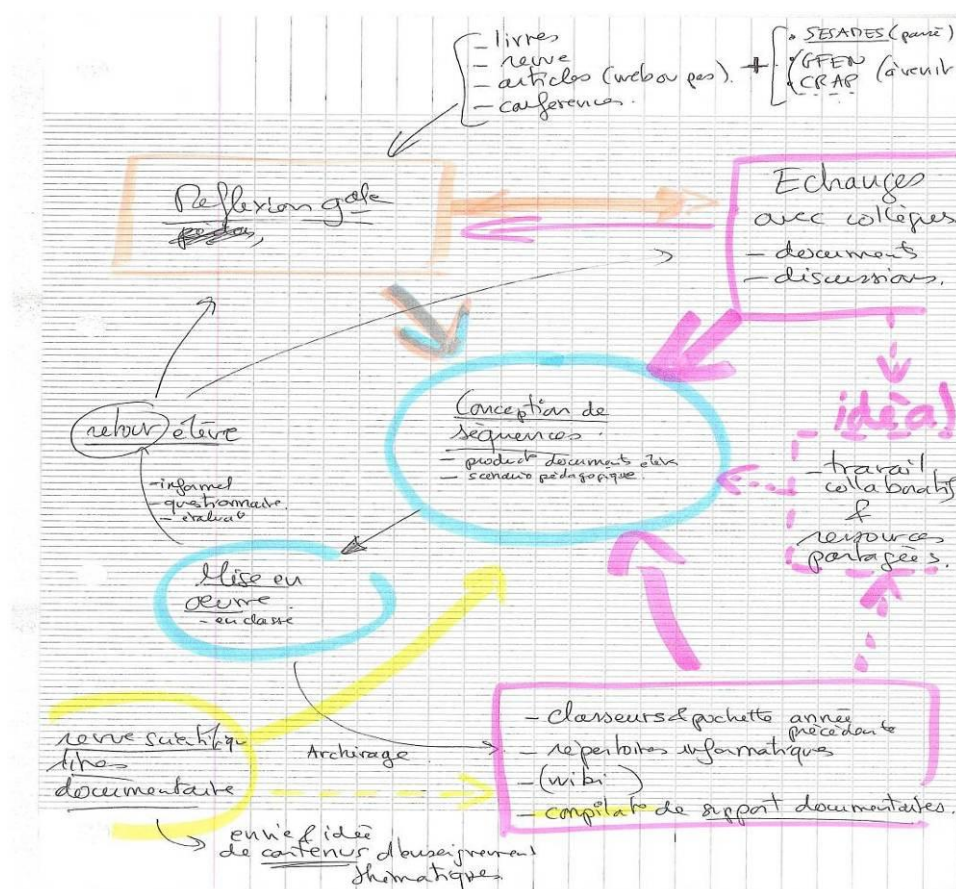 - livres
- revue
- articles (web ou pas).
- conférences.
+
• SESAMES (passé)
• GFEN
CRAP (à venir
Réflexion gale
Echanges
avec collègues
- documents
- discussions.
idéal
- travail
collaboratif
&
ressources
partagées.
Conception de
séquences.
- product° documents élève
- scénario pédagogique.
retour élève
- informel
- questionnaire.
- évaluat°
Mise en
œuvre.
- en classe
revue scientifique
livres
documentaire
Archivage
- classeurs & pochette année
précédente
- répertoires informatiques
- (wiki)
- compilat° de support documentaires.
envie & idée
de contenus d'enseignement
thématiques.